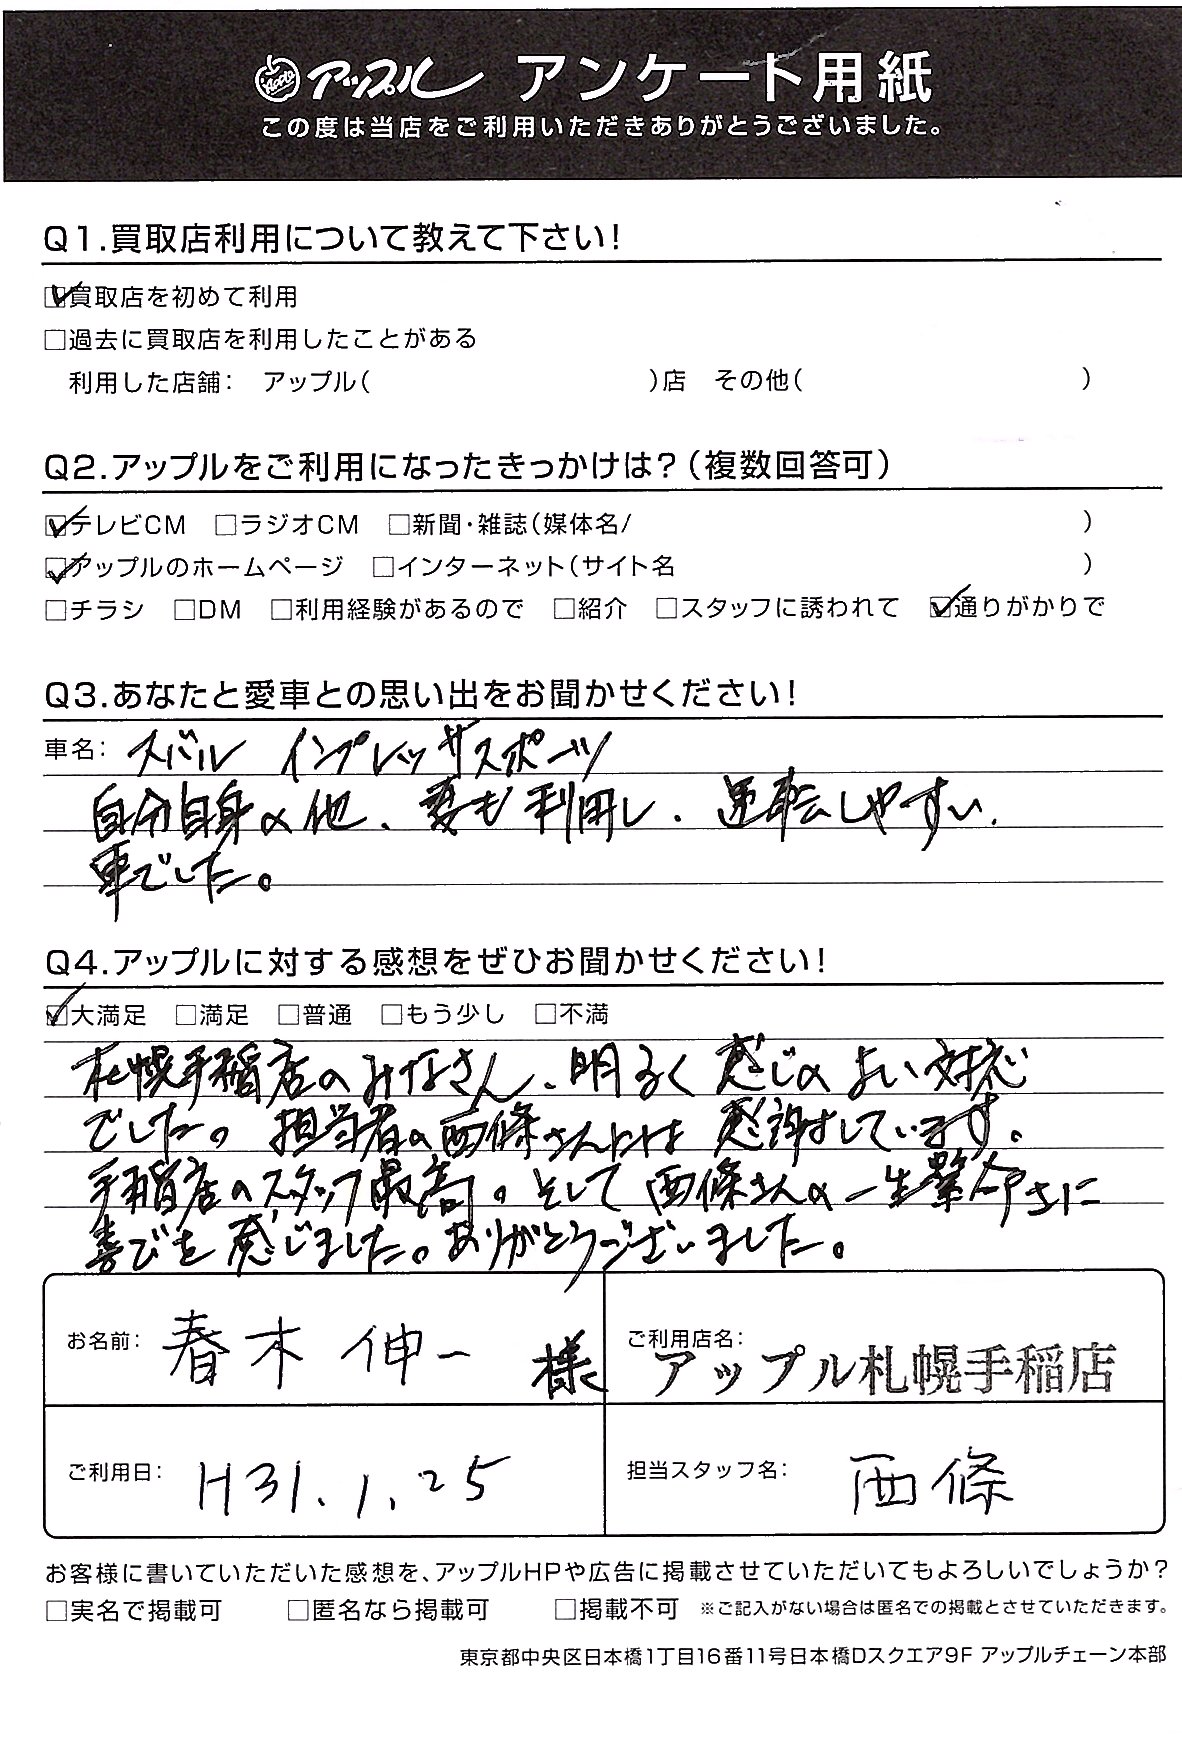 Apple アップル アンケート用紙
この度は当店をご利用いただきありがとうございました。
Q1.買取店利用について教えて下さい!
☑買取店を初めて利用
□過去に買取店を利用したことがある
利用した店舗: アップル( )店 その他( )
Q2.アップルをご利用になったきっかけは?(複数回答可)
☑テレビCM □ラジオCM □新聞・雑誌(媒体名/ )
☑アップルのホームページ □インターネット(サイト名 )
□チラシ □DM □利用経験があるので □紹介 □スタッフに誘われて ☑通りがかりで
Q3.あなたと愛車との思い出をお聞かせください!
車名: スバル インプレッサスポーツ
自分自身の他、妻も利用し、運転しやすい、
車でした。
Q4.アップルに対する感想をぜひお聞かせください!
☑大満足 □満足 □普通 □もう少し □不満
札幌手稲店のみなさん、明るく感じのよい対応
でした。担当者の西條さんには感謝しています。
手稲店のスタッフ最高。そして西條さんの一生懸命さに
喜びを感じました。ありがとうございました。
お名前: 春木 伸一 様 ご利用店名: アップル札幌手稲店
ご利用日: H31.1.25 担当スタッフ名: 西條
お客様に書いていただいた感想を、アップルHPや広告に掲載させていただいてもよろしいでしょうか?
□実名で掲載可 □匿名なら掲載可 □掲載不可 ※ご記入がない場合は匿名での掲載とさせていただきます。
東京都中央区日本橋1丁目16番11号日本橋Dスクエア9F アップルチェーン本部